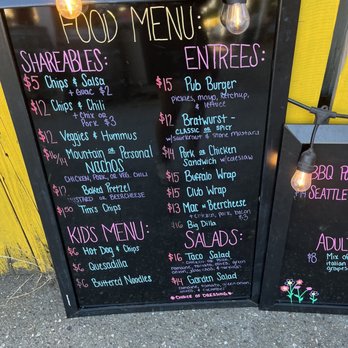 FOOD MENU:
SHAREABLES:
$5 Chips & Salsa
+ Guac $2
$12 Chips & Chili
+ Chix or
Pork $3
$12 Veggies & Hummus
Mountain or Personal
NACHOS
CHICKEN, PORK, OR VEG. CHILI
$12 Baked Pretzel
MUSTARD OR BEERCHEESE
Tim's Chips
KIDS MENU:
$6 Hot Dog & Chips
$6 Quesadilla
$6 Buttered Noodles
ENTREES:
$15 Pub Burger
pickles, mayo, ketchup,
& lettuce
$12 Bratwurst -
CLASSIC OR SPICY
w/ sauerkraut & stone mustard
$14 Pork or Chicken
Sandwich w/ coleslaw
$15 Buffalo Wrap
$15 Club Wrap
$13 Mac w/ Beercheese
+ chicken, pork, bacon
$3
$16 Big Dilla
SALADS:
$16 Taco Salad
$14 Garden Salad
* CHOICE OF DRESSING *
BBQ
SEATTLE
$8 Mix of
italian